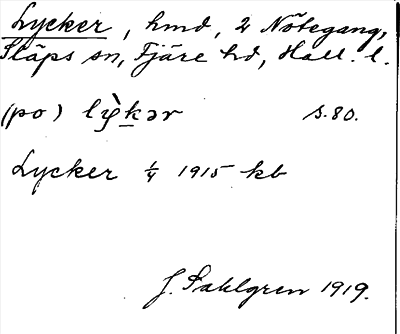 Lycker, hmd, 2 Nötegang,
Släps sn, Fjäre hd, Hall. l.
(po) lỳkər s. 80.
Lycker 1/4 1915 kb
J. Sahlgren 1919.